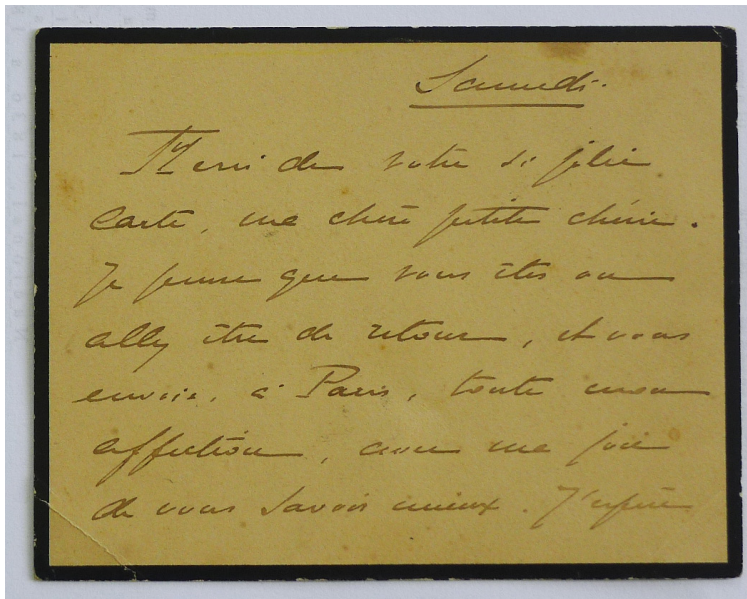 Samedi.
Merci de votre si jolie
carte, ma chère petite chérie.
Je pense que vous êtes ou
allez être de retour, et vous
envoie, à Paris, toute mon
affection, avec ma joie
de vous savoir mieux. J'espère